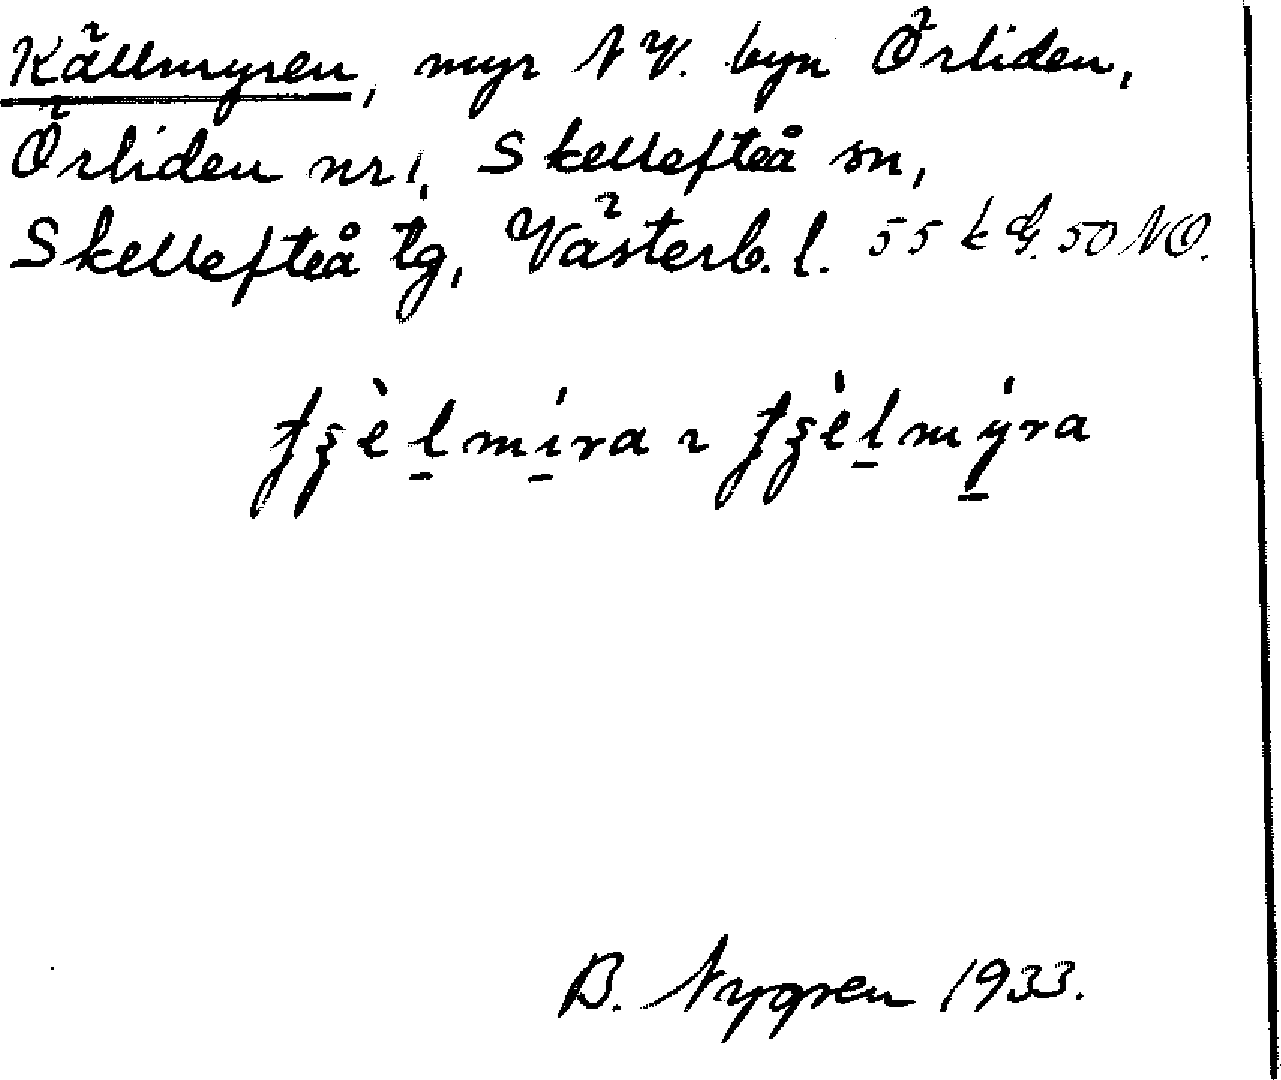 Källmyren, myr NV. byn Örliden,
Örliden nr 1, Skellefteå sn,
Skellefteå tg, Västerb. l. 55 k G. 50 NO.
B. Nygren 1933.